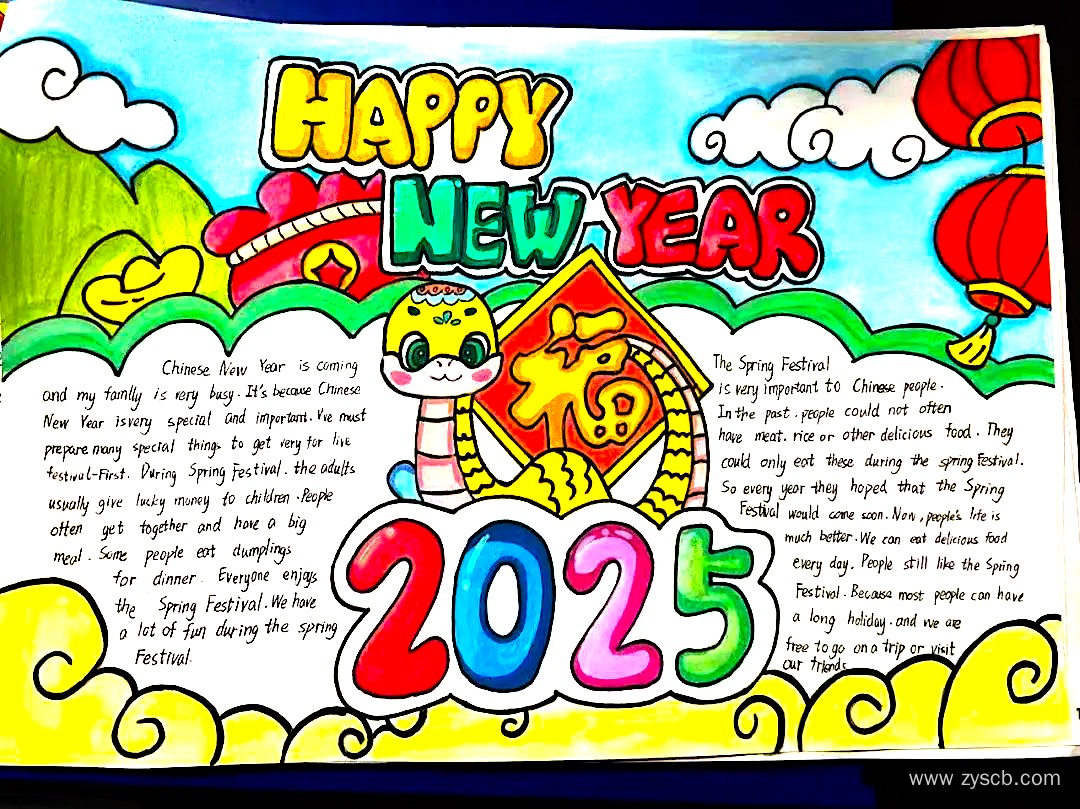 HAPPY
NEW YEAR
福
Chinese New Year is coming
and my family is very busy. It's because Chinese
New Year is very special and important. I've must
prepare many special things to get very for live
festival-First. During Spring Festival. the adults
usually give lucky money to children. People
often get together and have a big
meal. Some people eat dumplings
for dinner. Everyone enjoys
the Spring Festival. We have
a lot of fun during the spring
Festival.
The Spring Festival
is very important to Chinese people.
In the past. people could not often
have meat. rice or other delicious food. They
could only eat these during the spring Festival.
So every year they hoped that the Spring
Festival would come soon. Now, people's life is
much better. We can eat delicious food
every day. People still like the Spring
Festival. Because most people can have
a long holiday. and we are
free to go on a trip or visit
our friends
2025
www.zyscb.com